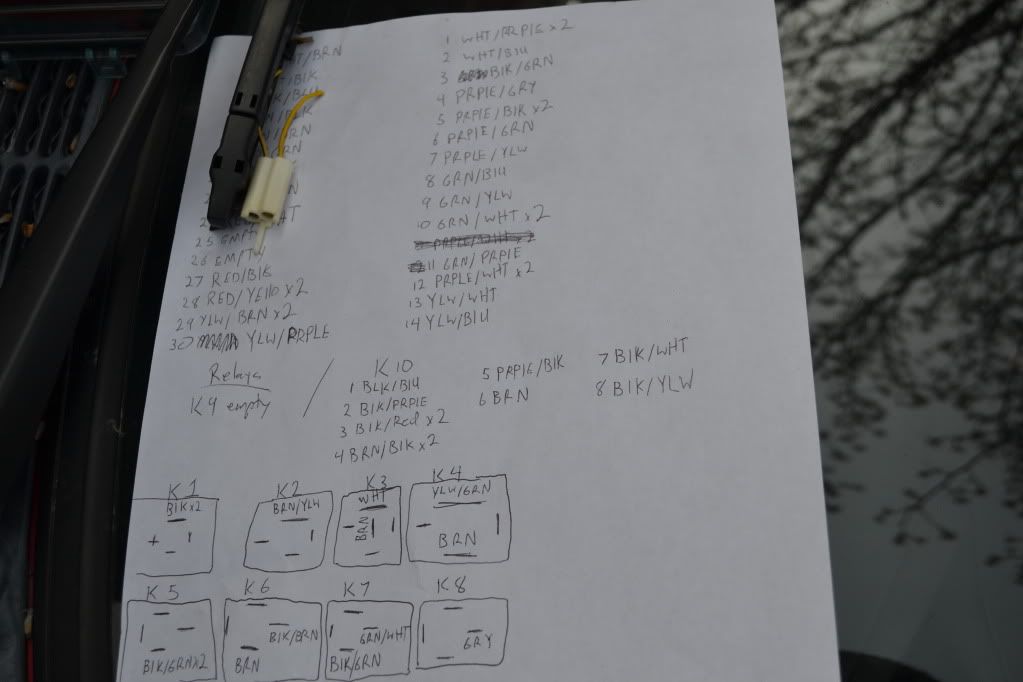 HT/BRN
T/BIK
K/BLU
/BLK
RN
RN
N
HT
25 EMPTY
26 EMPTY
27 RED/BIK
28 RED/YEllO x2
29 YLW/BRN x2
30 YLW/PRPLE
1 WHT/PRPlE x2
2 WHT/BlU
3 BIK/GRN
4 PRPlE/GRY
5 PRPlE/BIK x2
6 PRPlE/GRN
7 PRPLE/YLW
8 GRN/BlU
9 GRN/YLW
10 GRN/WHT x2
11 GRN/PRPlE
12 PRPLE/WHT x2
13 YLW/WHT
14 YLW/BlU
Relays
K9 empty
/
K10
1 BLK/BlU
2 BIK/PRPlE
3 BIK/Red x2
4 BRN/BIK x2
5 PRPlE/BIK
6 BRN
7 BIK/WHT
8 BIK/YLW
K1
BIK x2
+
K2
BRN/YLW
K3
WHT
BRN
K4
YLW/GRN
BRN
K5
BIK/GRN x2
K6
BIK/BRN
BRN
K7
GRN/WHT
BIK/GRN
K8
GRY